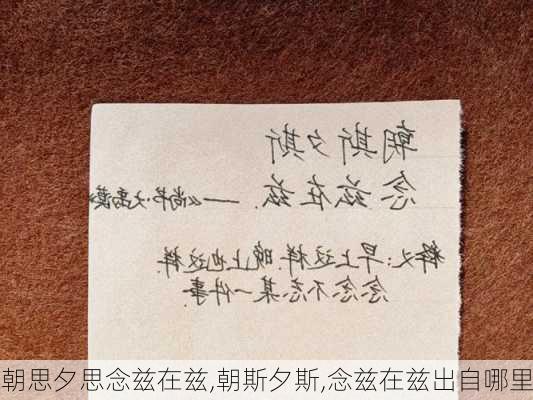 朝斯夕斯
念兹在兹.——《尚书·大禹谟
释义:早上这样.晚上也这样.
念念不忘某一件事.
朝思夕思念兹在兹,朝斯夕斯,念兹在兹出自哪里